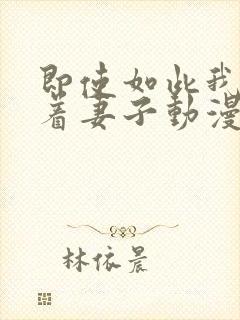 即使如此我
着妻子動漫
林依晨